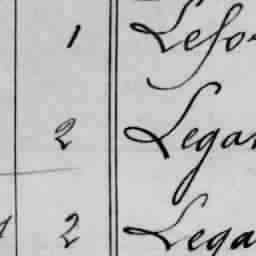 1 Lefo
2 Legar
2 Lega